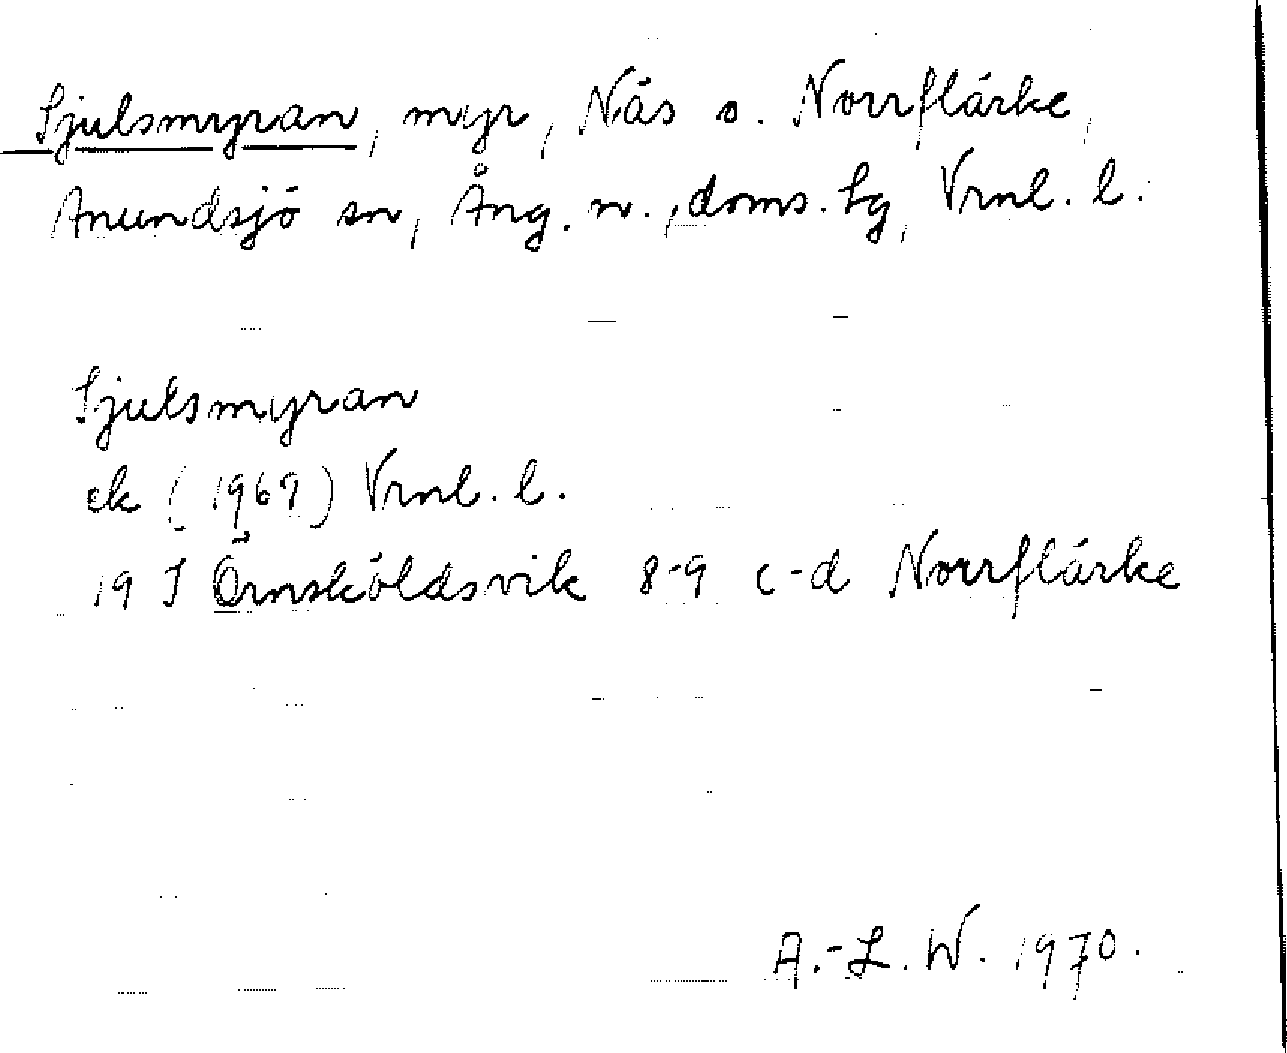 Sjulsmyran, myr, Näs o. Norrflärke,
Anundsjö sn, Ång. n., doms. lg, Vrnl. l.
Sjulsmyran
ek (1969) Vrnl. l.
19 J Örnsköldsvik 8-9 c-d Norrflärke
A.-L. W. 1970.